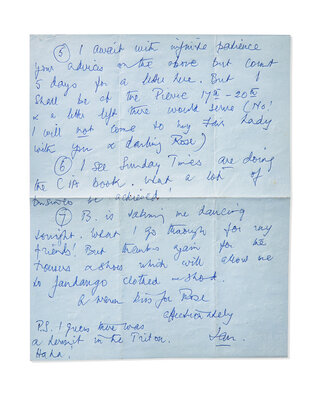 (5) I await with infinite patience
your advices on the above but count
5 days for a letter here. But I
shall be at the Pierre 17th - 20th
& a letter left there would serve (No!
I will not come to My Fair Lady
with you & darling Rose)
(6) I see Sunday Times are doing
the CIA book. What a lot of
business to be achieved!
(7) B. is taking me dancing
tonight. What I go through for my
friends! But thanks again for the
trousers & shoes which will allow me
to fandango clothed & shod.
A warm kiss for Rose
affectionately
Ian.
P.S. I guess there was
a hermit in the Triton.
Haha!